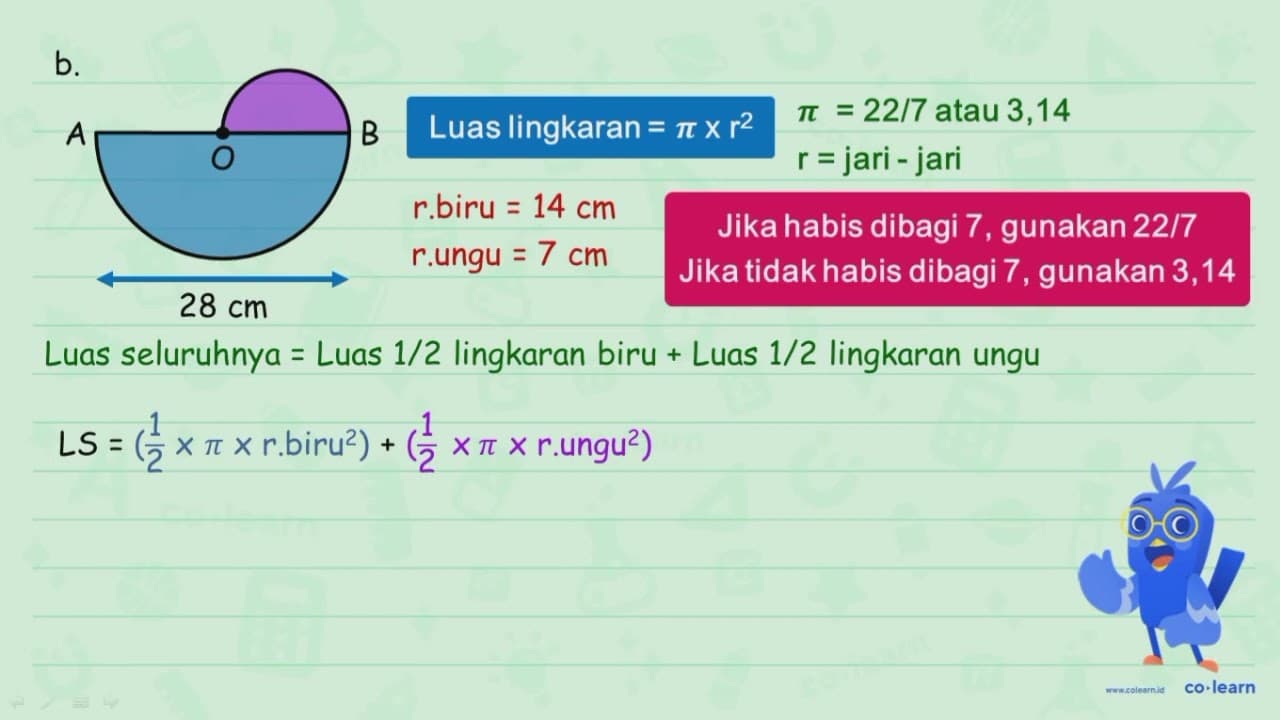 b.
A
B
O
28 cm
Luas lingkaran = π x r²
π = 22/7 atau 3,14
r = jari - jari
r.biru = 14 cm
r.ungu = 7 cm
Jika habis dibagi 7, gunakan 22/7
Jika tidak habis dibagi 7, gunakan 3,14
Luas seluruhnya = Luas 1/2 lingkaran biru + Luas 1/2 lingkaran ungu
LS = (1/2 x π x r.biru²) + (1/2 x π x r.ungu²)
www.colearn.id
co·learn